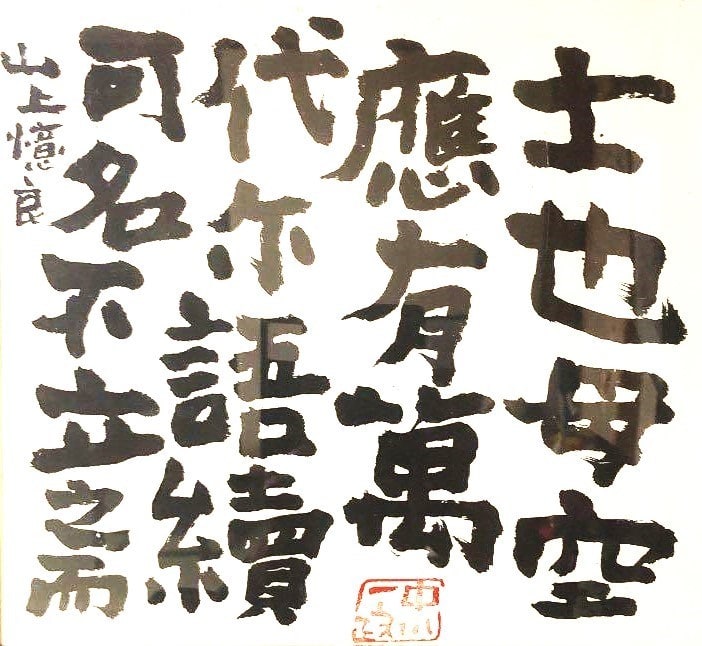 士也母空
應有萬
代尓語續
可名不立之而
山上憶良